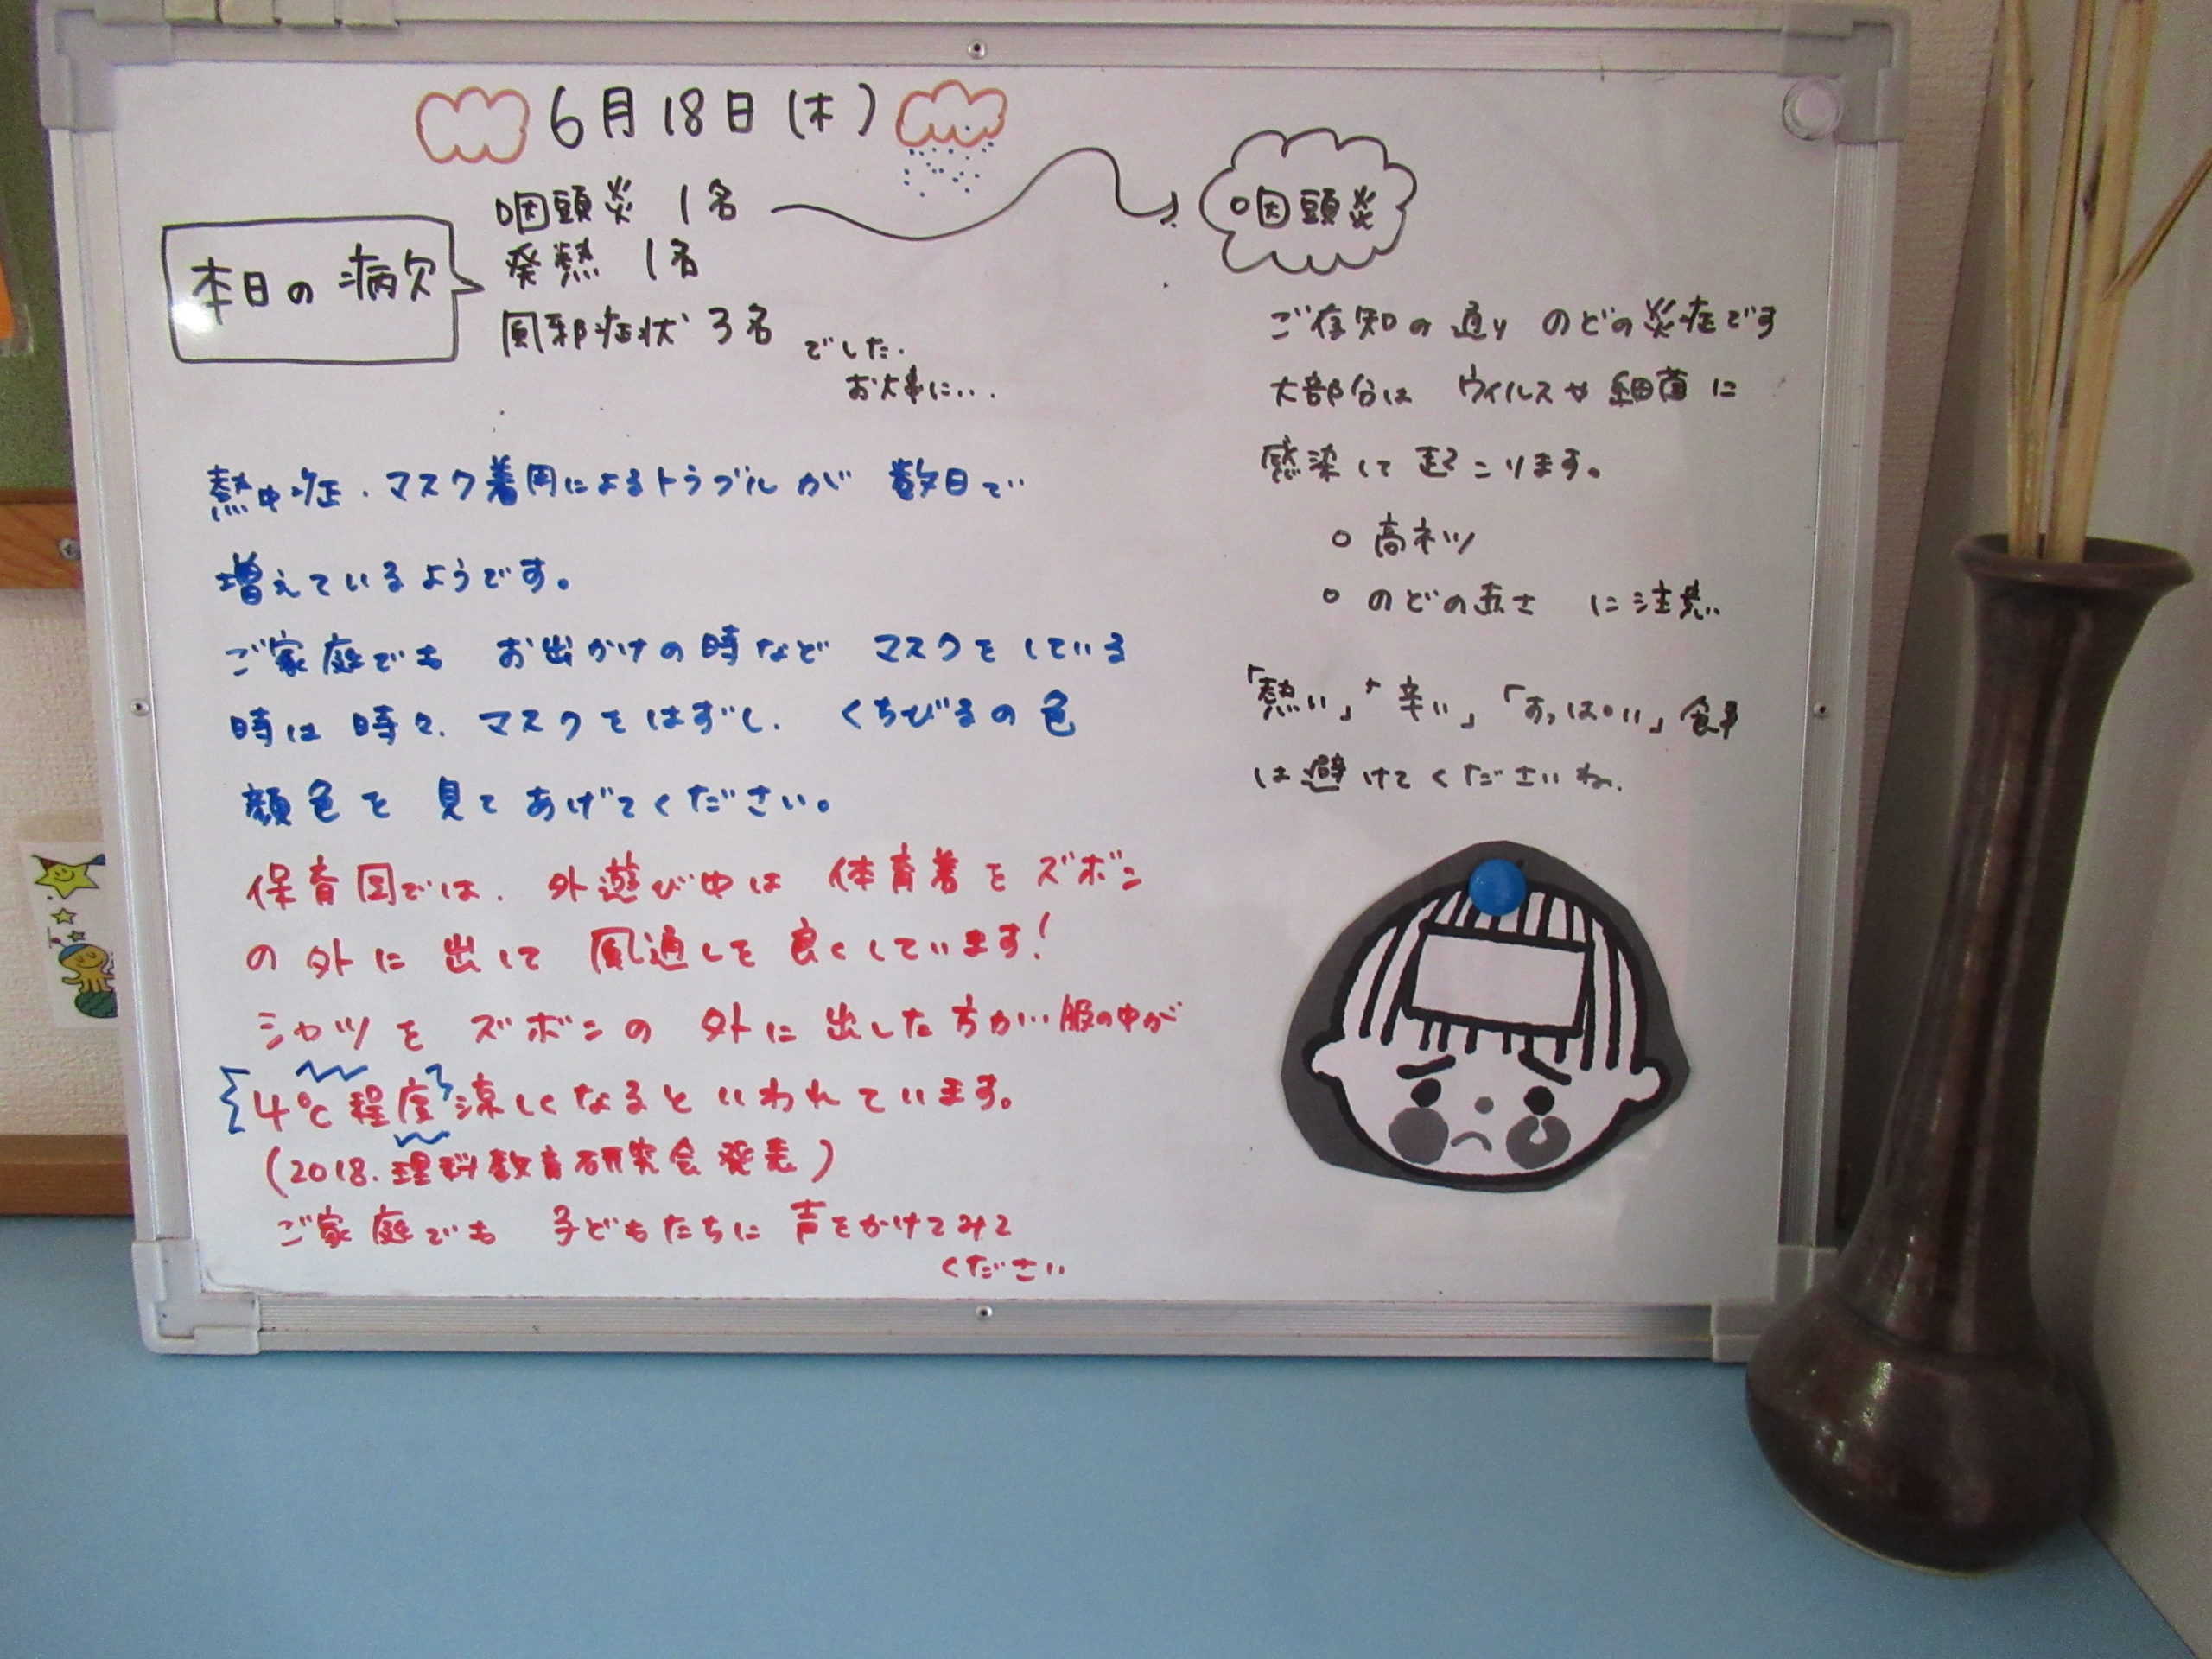 6月18日(木)
本日の病欠
咽頭炎 1名
発熱 1名
風邪症状 3名
でした.
お大事に...
熱中症.マスク着用によるトラブルが 数日で
増えているようです。
ご家庭でも お出かけの時など マスクをしている
時は 時々.マスクをはずし. くちびるの色
顔色を 見てあげてください。
保育園では. 外遊び中は 体育着を ズボン
の外に 出して 風通しを 良くしています!
シャツを ズボンの 外に 出した方が.. 服の中が
4℃程度 涼しくなるといわれています。
(2018.理科教育研究会発表)
ご家庭でも 子どもたちに 声をかけてみて
ください
咽頭炎
ご存知の通り のどの炎症です
大部分は ウイルスや細菌に
感染して起こります。
○ 高ネツ
○ のどの赤さ に注意
「熱い」「辛い」「すっぱい」食事
は避けてくださいね.